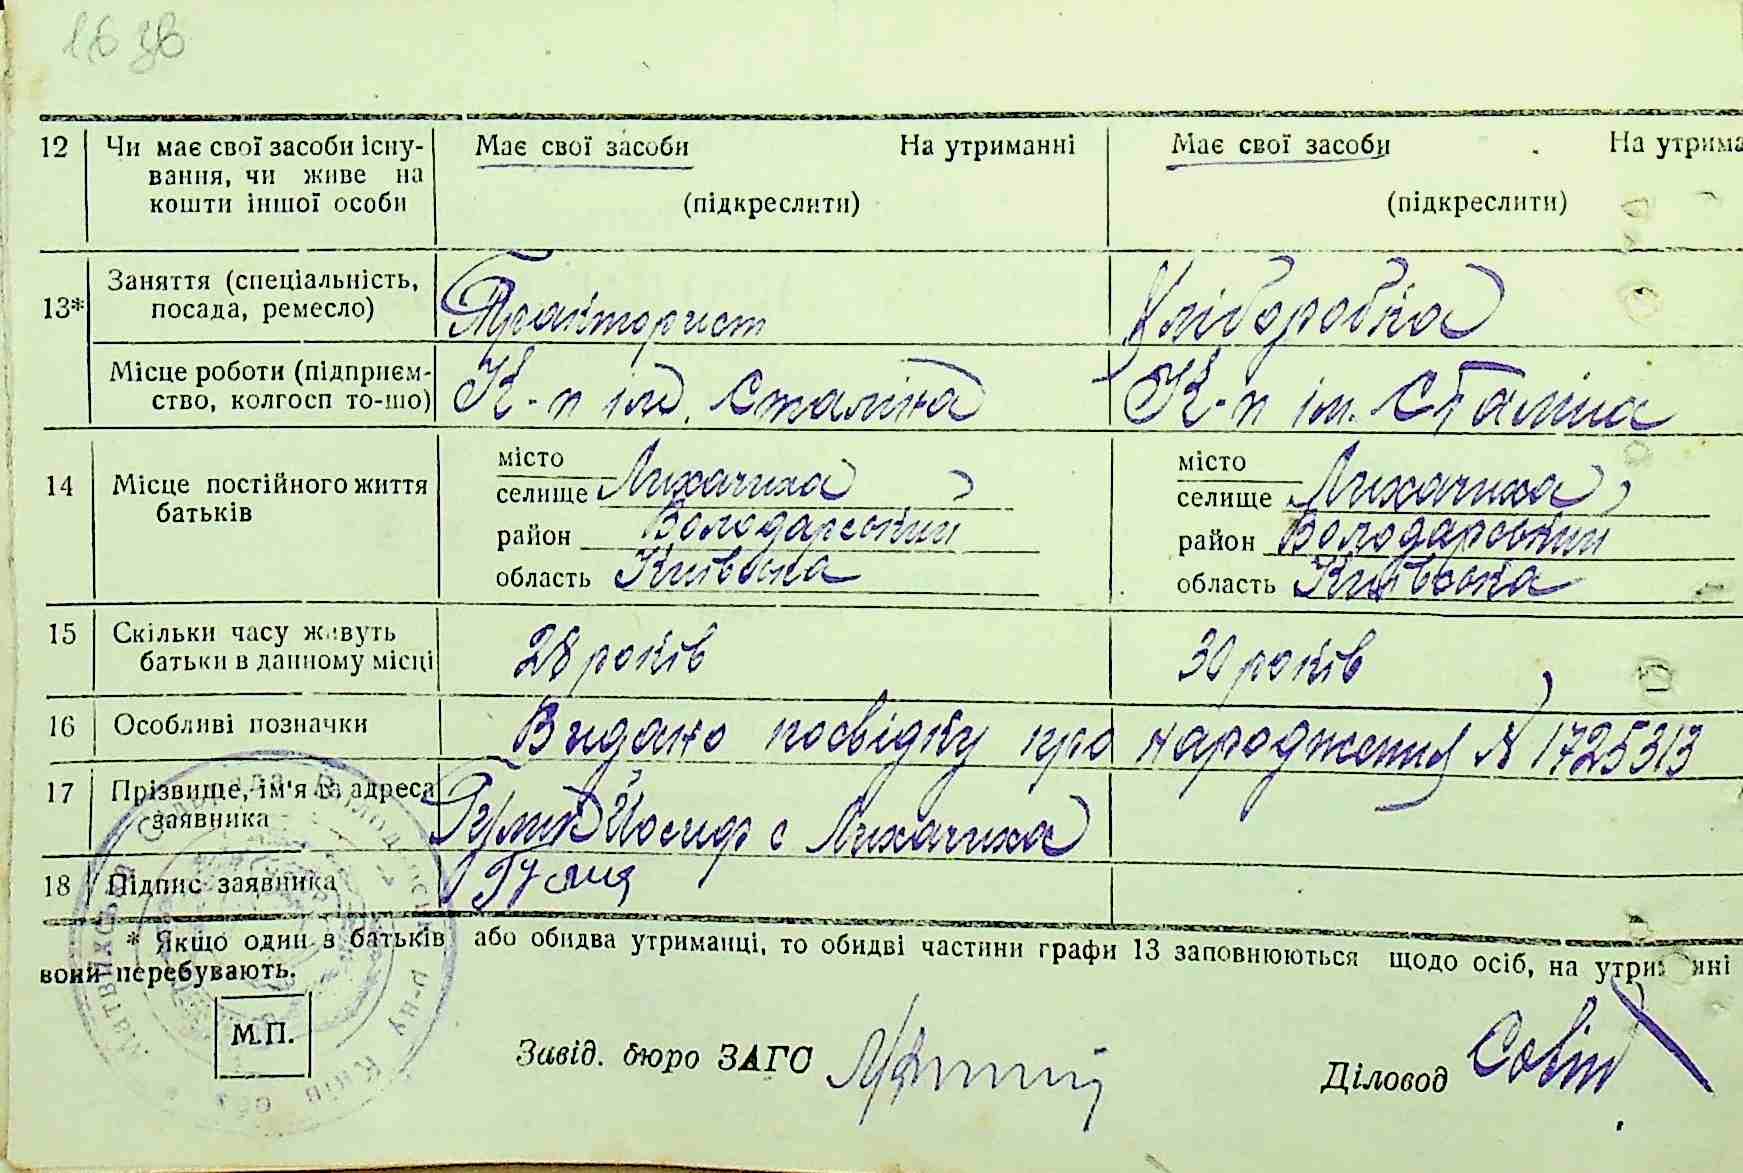 16 зв
12 Чи має свої засоби існу- Має свої засоби На утриманні Має свої засоби На утрима
вання, чи живе на
кошти іншої особи (підкреслити) (підкреслити)
13* Заняття (спеціальність, Тракторист Хліборобка
посада, ремесло)
Місце роботи (підприєм- К-п ім. Сталіна К-п ім. Сталіна
ство, колгосп то-що)
місто місто
14 Місце постійного життя селище Лихачиха селище Лихачиха
батьків район Володарський район Володарський
область Київська область Київська
15 Скільки часу живуть 28 років 30 років
батьки в данному місці
16 Особливі позначки Видано посвідку про народження № 1725313
17 Прізвище, ім'я та адреса Гулий Йосиф с Лихачиха
заявника
18 Підпис заявника Гулий
* Якщо один з батьків або обидва утриманці, то обидві частини графи 13 заповнюються щодо осіб, на утриманні
вони перебувають.
М.П. Завід. бюро ЗАГС Діловод